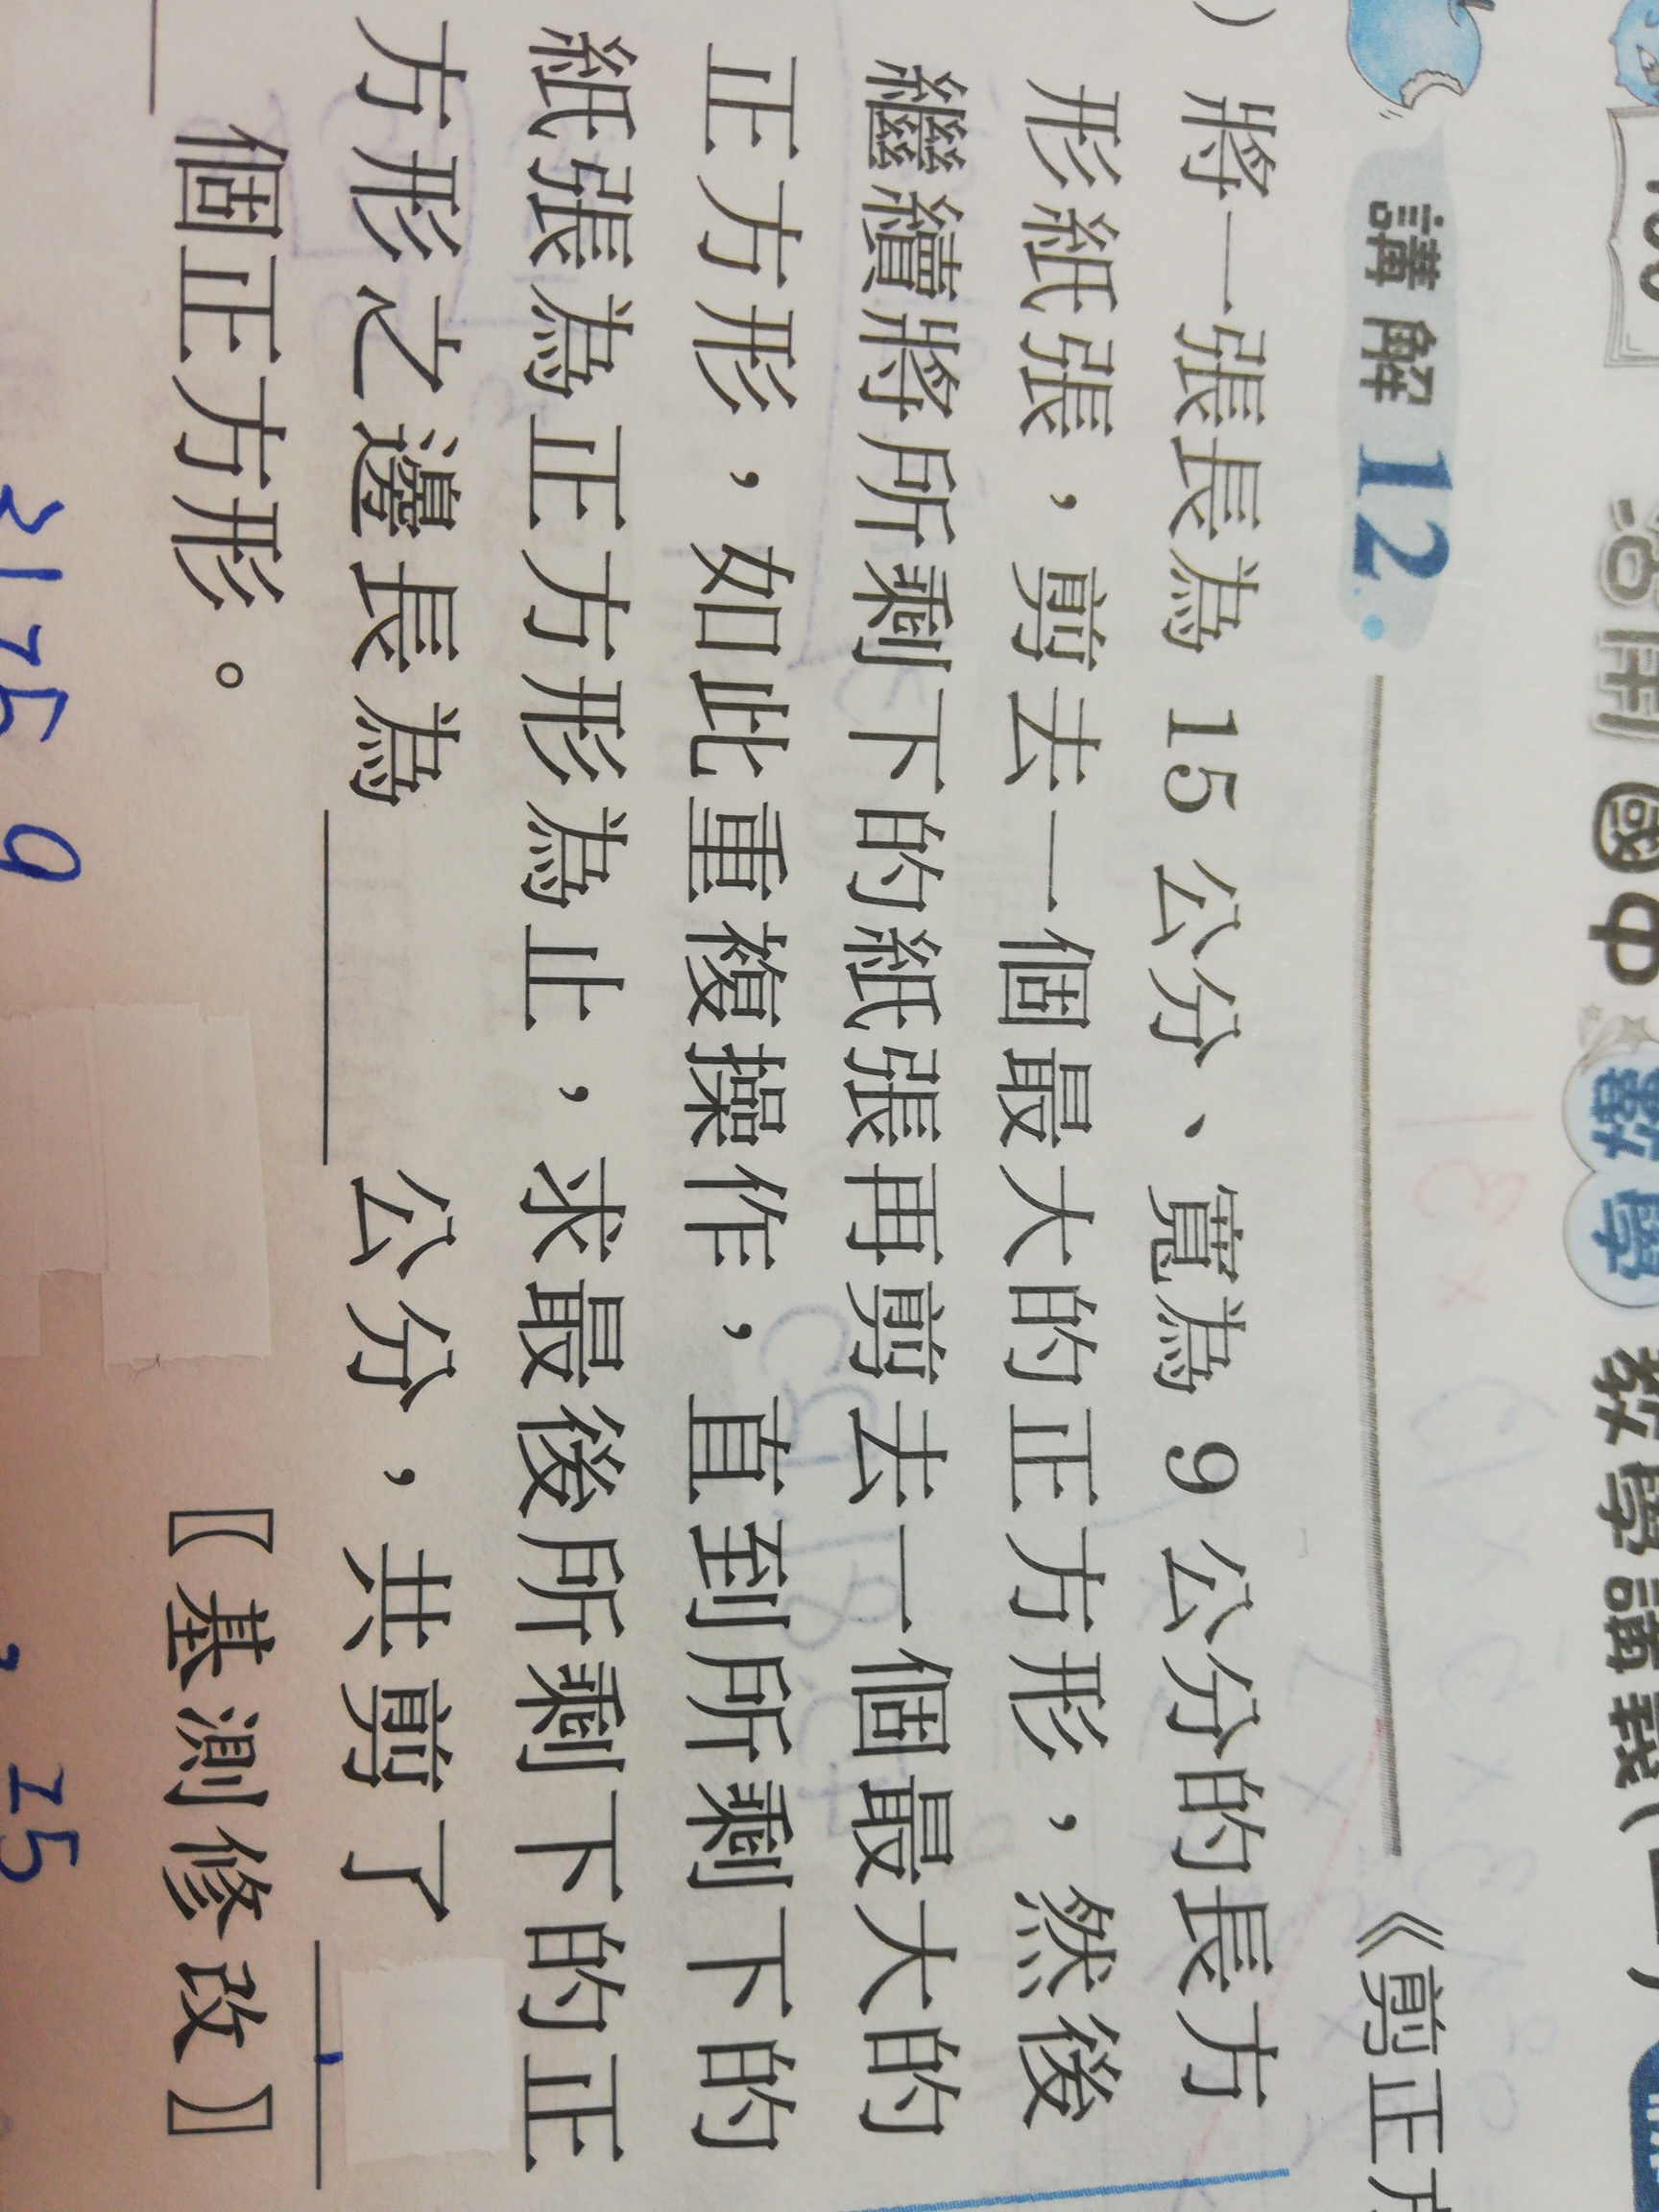 國中數學教學講義(二)
講解 12 《剪正方
將一張長為 15 公分、寬為 9 公分的長方
形紙張，剪去一個最大的正方形，然後
繼續將所剩下的紙張再剪去一個最大的
正方形，如此重複操作，直到所剩下的
紙張為正方形為止，求最後所剩下的正
方形之邊長為＿＿＿公分，共剪了＿＿
＿個正方形。 〖基測修改〗